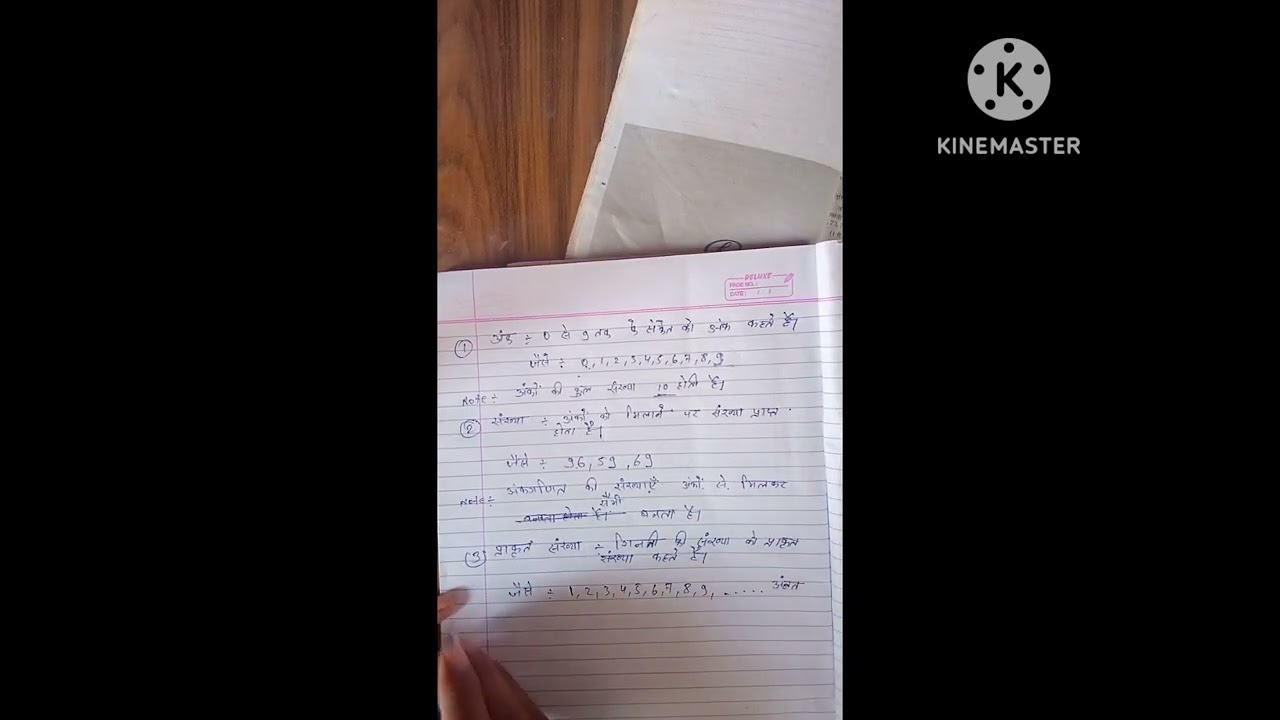 K
KINEMASTER
DELUXE
PAGE NO.:
DATE: / /
① अंक ÷ 0 से 9 तक के संकेत को अंक कहते हैं।
जैसे ÷ 0,1,2,3,4,5,6,7,8,9
Note ÷ अंकों की कुल संख्या 10 होती है।
② संख्या ÷ अंकों को मिलाने पर संख्या प्राप्त
होता है।
जैसे ÷ 96, 59, 69
Note ÷ अंकगणित की संख्याएँ अंकों से मिलकर
सभी
है। बनता है।
③ प्राकृत संख्या ÷ गिनती की संख्या को प्राकृत
संख्या कहते हैं।
जैसे ÷ 1,2,3,4,5,6,7,8,9, ...... अंनत